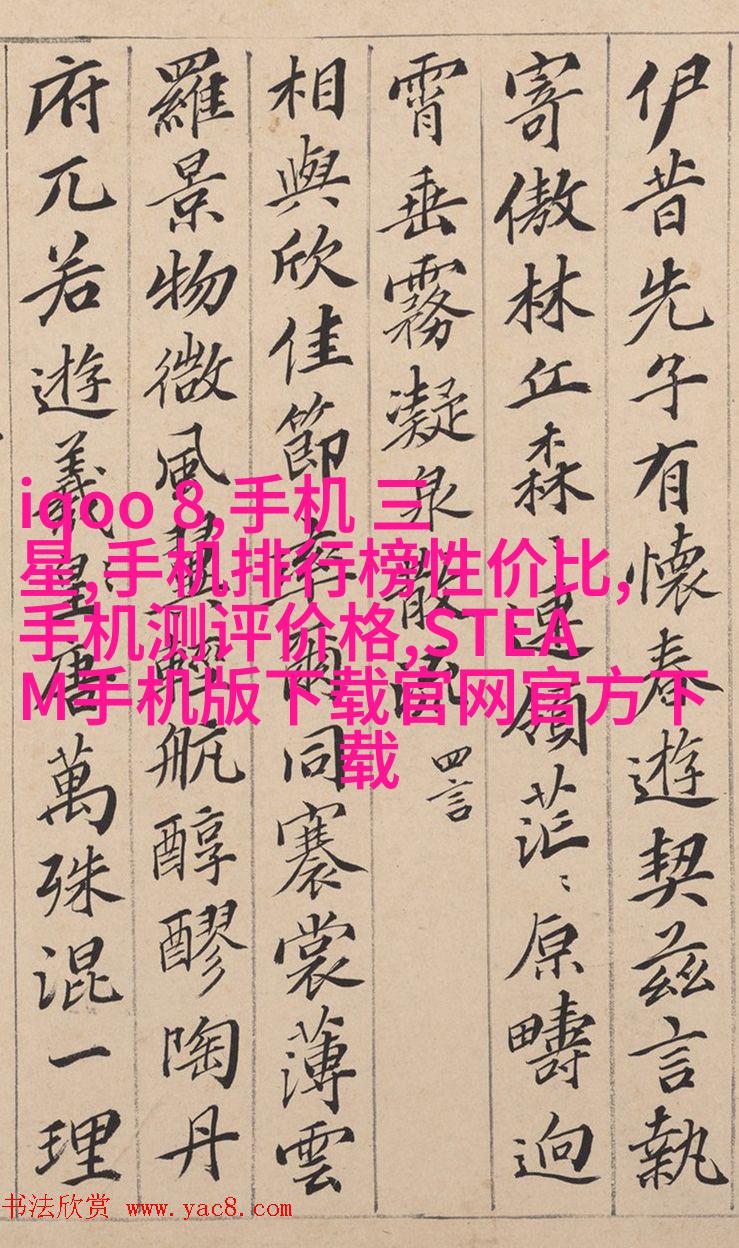 伊昔先子有懷春遊契茲言執
寄傲林丘森〻連領茫〻原疇迥
霄垂霧凝泉散流 四言
相與欣佳節率爾同褰裳薄雲
羅景物微風翼輕航醇醪陶丹
府兀若遊羲皇唐萬殊混一理
iqoo 8,手机 三
星,手机排行榜性价比,
手机测评价格,STEA
M手机版下载官网官方下
载
书法欣赏 www.yac8.com